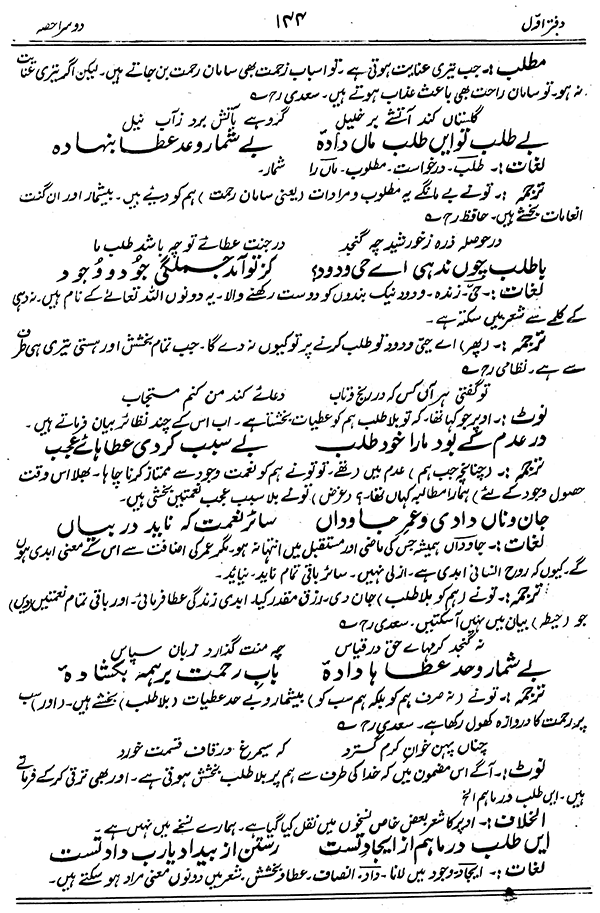 دفتر اوّل ۱۴۴ دوسرا حصہ
مطلب :۔ جب تیری عنایت ہوتی ہے۔ تو اسباب زحمت بھی سامان رحمت بن جاتے ہیں۔ لیکن اگر تیری عنایت
نہ ہو۔ تو سامان راحت بھی باعث عذاب ہوتے ہیں۔ سعدی رح ؎
گلستاں کند آتشے بر خلیل گروہے بآتش برد ز آب نیل
بے طلب تو ایں طلب ماں دادۂ بے شمار و عد عطا بنہادہ
لغات :۔ طلب۔ درخواست۔ مطلوب۔ ماں را شمار۔
ترجمہ :۔ تو نے بے مانگے یہ مطلوب و مرادات (یعنی سامان رحمت) ہم کو دیئے ہیں۔ بیشمار اور ان گنت
انعامات بخشے ہیں۔ حافظ رح ؎
در حوصلہ ذرہ ز خورشید چہ گنجد در جنت عطائے تو چہ باشد طلب ما
با طلب چوں ندہی اے حی ودود؟ کز تو آمد جملگی جود و وجود
لغات :۔ حیّ۔ زندہ۔ ودود نیک بندوں کو دوست رکھنے والا۔ یہ دونوں اللہ تعالےٰ کے نام ہیں۔ ندہی
کے کلمے سے شعر میں سکتہ ہے۔
ترجمہ :۔ (پھر) اے حیّ و ودود تو طلب کرنے پر تو کیوں نہ دے گا۔ جب تمام بخشش اور ہستی تیری ہی طرف
سے ہے۔ نظامی رح ؎
تو گفتی ہر آں کس کہ در رنج و تاب دعائے کند من کنم مستجاب
نوٹ :۔ اوپر جو کہا تھا۔ کہ تو بلا طلب ہم کو عطیات بخشتا ہے۔ اب اس کے چند نظائر بیان فرماتے ہیں۔
در عدم کے بود ما را خود طلب بے سبب کردی عطاہائے عجب
ترجمہ :۔ (چنانچہ جب ہم) عدم میں تھے۔ تو تو نے ہم کو نعمت وجود سے ممتاز کرنا چاہا۔ بھلا اس وقت
حصول وجود کے لئے) ہمارا مطالبہ کہاں تھا۔؟ (غرض) تو نے بلا سبب عجب نعمتیں بخشی ہیں۔
جان و ناں دادی و عمر جاوداں سائر نعمت کہ ناید در بیاں
لغات :۔ جاوداں ہمیشہ جس کی ماضی اور مستقبل میں انتہا نہ ہو۔ مگر عمر کی اضافت سے اس کے معنی ابدی ہوں
گے۔ کیوں کہ روح انسانی ابدی ہے۔ ازلی نہیں۔ سائر باقی تمام ناید۔ نیائد۔
ترجمہ :۔ تو نے (ہم کو بلا طلب) جان دی۔ رزق مقدر کیا۔ ابدی زندگی عطا فرمائی۔ اور باقی تمام نعمتیں (دیں)
جو (حیطہ) بیان میں نہیں آ سکتیں۔ سعدی رح ؎
نہ گنجد کرمہاے حق در قیاس چہ منت گذارد زبان سپاس
بے شمار و حد عطاہا دادۂ باب رحمت بر ہمہ بکشادۂ
ترجمہ :۔ تو نے (نہ صرف ہم کو بلکہ ہم سب کو) بیشمار و بے حد عطیات (بلا طلب) بخشے ہیں۔ (اور) سب
پر رحمت کا دروازہ کھول رکھا ہے۔ سعدی رح ؎
چناں پہن خوان کرم گسترد کہ سیمرغ در قاف قسمت خورد
نوٹ :۔ آگے اس مضمون میں کہ خدا کی طرف سے ہم پر بلا طلب بخشش ہوتی ہے۔ اور بھی ترقی کر کے فرماتے
ہیں۔ ایں طلب در ما ہم الخ
الخلاف :۔ اوپر کا شعر بعض خاص نسخوں میں نقل کیا گیا ہے۔ ہمارے نسخے میں نہیں ہے۔
ایں طلب در ما ہم از ایجاد تست رستن از بیداد یارب داد تست
لغات :۔ ایجاد وجود میں لانا۔ داد۔ انصاف۔ عطا و بخشش شعر میں دونوں معنی مراد ہو سکتے ہیں۔